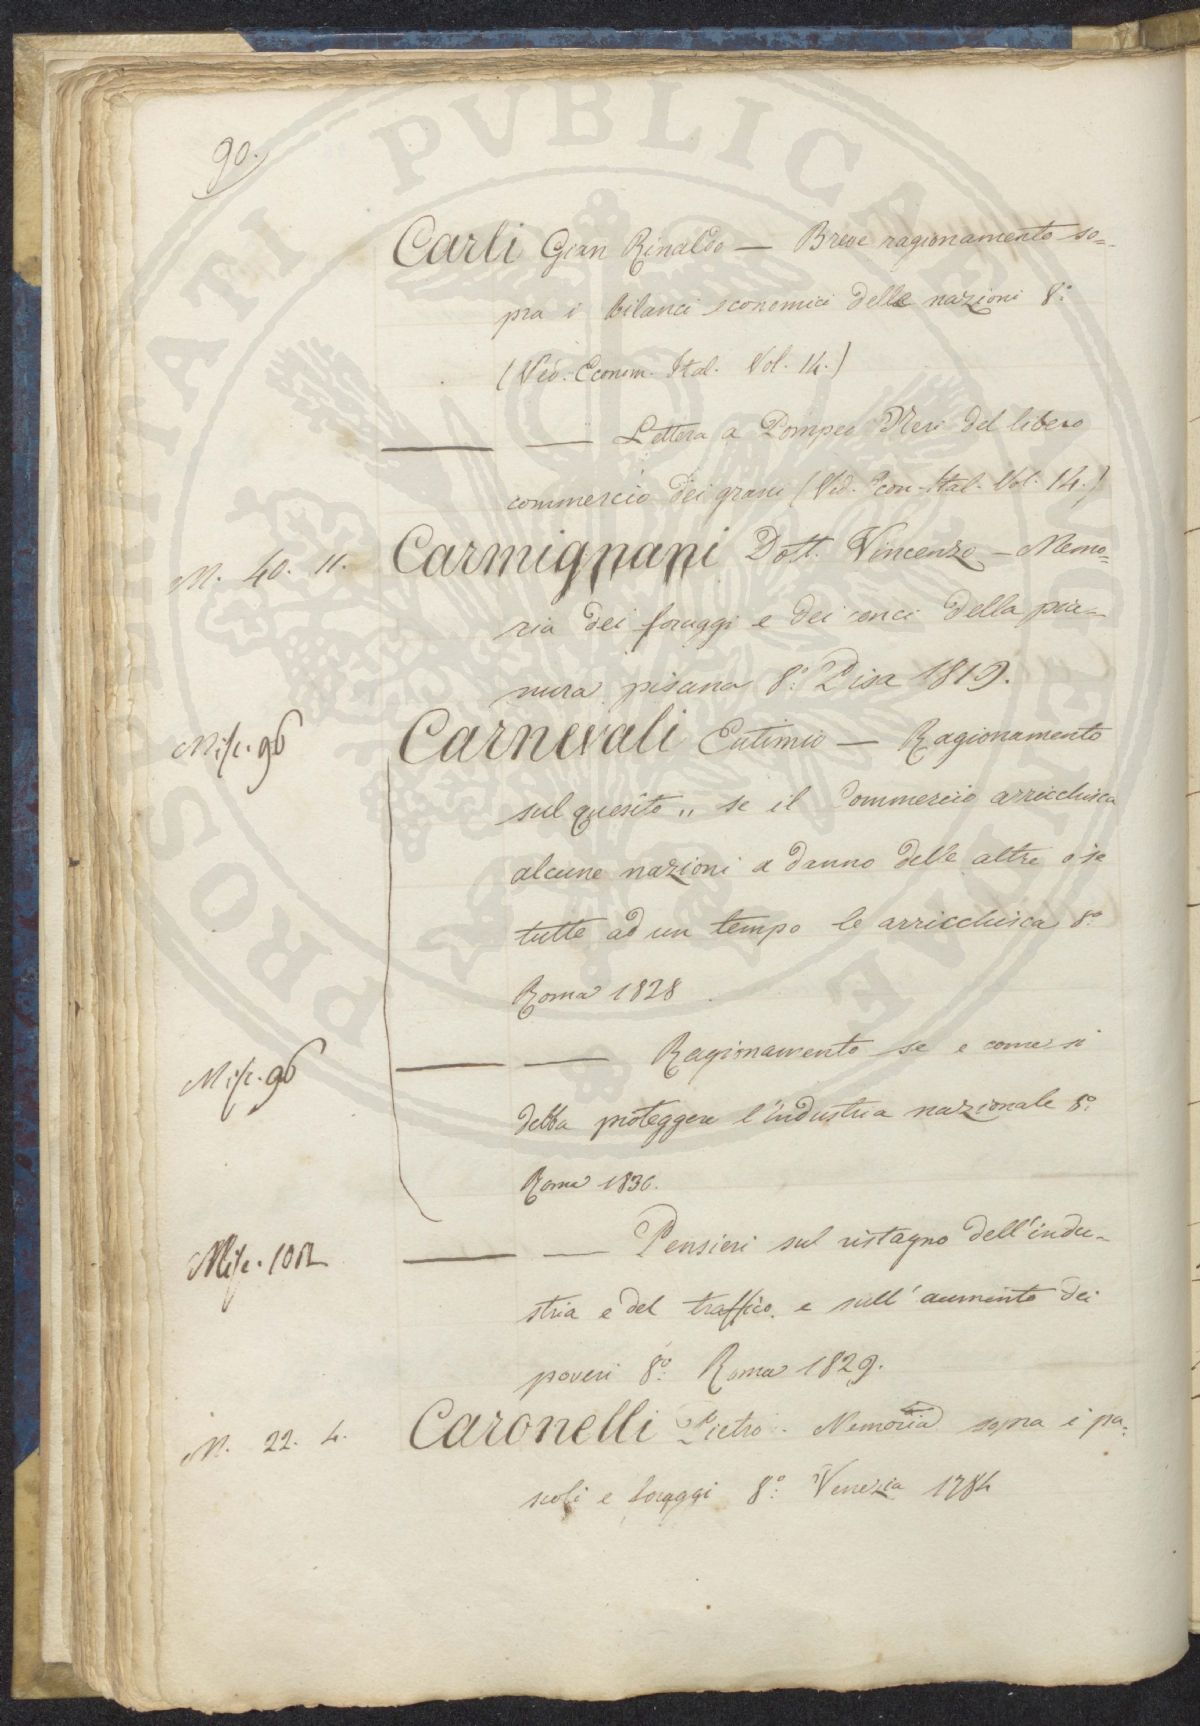 90.
Carli Gian Rinaldo — Breve ragionamento so=
pra i bilanci economici delle nazioni 8.°
(Ved. Econom. Ital. Vol. 14.)
—— —— Lettera a Pompeo Neri del libero
commercio dei grani (Ved. Econ. Ital. Vol. 14.)
M. 40. 11. Carmignani Dott. Vincenzo — Memo=
ria dei foraggi e dei conci della pia=
nura pisana 8.° Pisa 1819.
Misc. 96 Carnevali Eutimio — Ragionamento
sul quesito „ se il Commercio arricchisca
alcune nazioni a danno delle altre o se
tutte ad un tempo le arricchisca 8.°
Roma 1828
Misc. 96 —— —— Ragionamento se e come si
debba proteggere l'industria nazionale 8.°
Roma 1830.
Misc. 102 —— —— Pensieri sul ristagno dell'indu=
stria e del traffico e sull'aumento dei
poveri 8.° Roma 1829.
M. 22. 4. Caronelli Pietro. Memoria sopra i pa=
scoli e foraggi 8.° Venezia 1784
PROSPERITATI PVBLICAE AVGENDAE